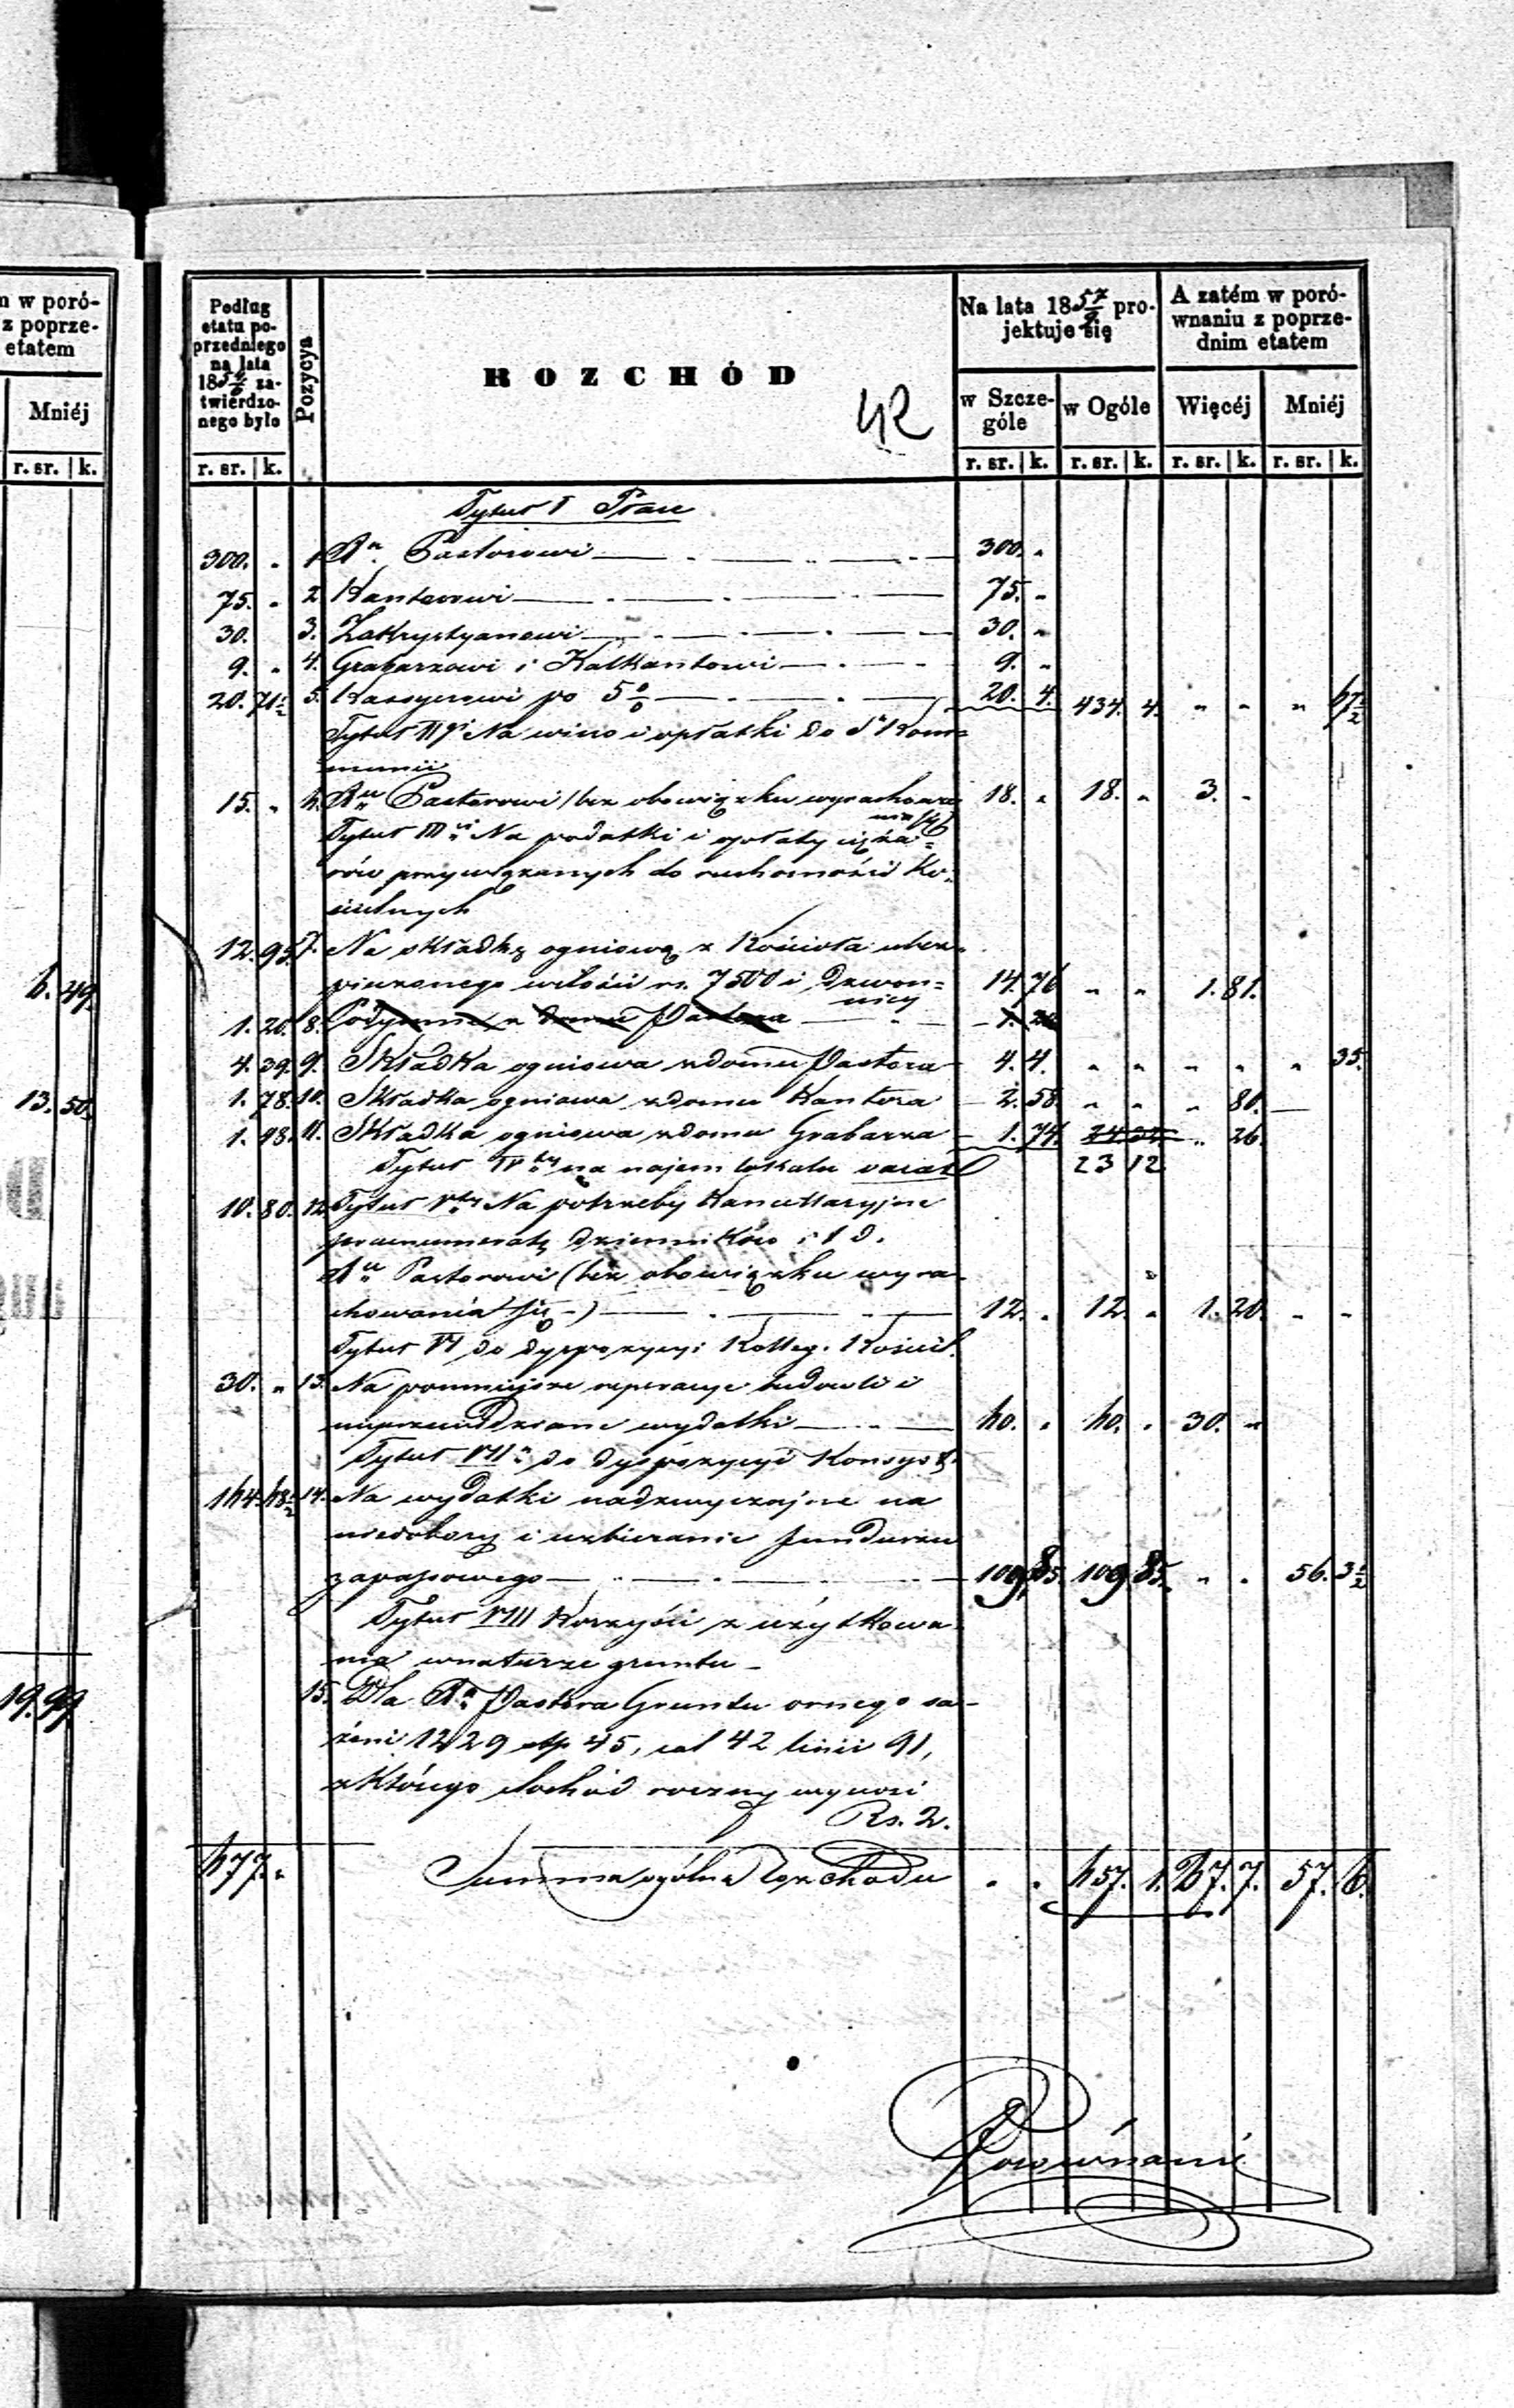 m w poró-
z poprze-
etatem
Mniéj
r. sr. k.
6. 49.
13. 50.
19. 99
Podług etatu poprzedniego na lata 185 4/6 zatwierdzonego było
Pozycya
ROZCHÓD
42
Na lata 185 7/9 projektuje się
A zatém w porównaniu z poprzednim etatem
w Szczególe
w Ogóle
Więcéj
Mniéj
r. sr. k. r. sr. k. r. sr. k. r. sr. k. r. sr. k.
Tytuł I Płace
300. " 1 Xu Pastorowi 300. "
75. " 2 Kantorowi 75. "
30. 3. Zakrystyanowi 30. "
9. " 4. Grabarzowi i Kalkantowi 9. "
20. 71½ 5. Kassyerowi po 5% 20. 4. 434. 4. " " " 67½
Tytuł II gi Na wino i opłatki do Sn Kom=
munii
15. " 6. Xu Pastorowi /bez obowiązku wyrachowa
nia się/ 18. " 18. " 3. "
Tytuł III ci Na podatki i opłaty cięża=
rów przywiązanych do ruchomości Ko=
ścielnych
12. 95. 7. Na składkę ogniową z Kościoła ubez=
pieczonego w ilości rs. 7500 i Dzwon=
nicy 14. 76 " " 1. 81.
1. 20. 8. Podymne z domu Pastora 1. 20
4. 39. 9. Składka ogniowa z domu Pastora 4. 4. " " " " " 35.
1. 78. 10. Składka ogniowa z domu Kantora 2. 58. " " " 80.
1. 48. 11. Składka ogniowa z domu Grabarza 1. 74. " 26.
Tytuł IV ty na najem lokalu vacat 23 12
10. 80. 12. Tytuł V ty Na potrzeby Kancellaryjne
prenumeratę dzienników i t d.
Xu Pastorowi (bez obowiązku wyra=
chowania się -) 12. " 12. " 1. 20. " "
Tytuł VI do dyspozycyi Kolleg. Kościel.
30. " 13. Na pomniejsze reperacye budowli i
nieprzewidziane wydatki 60. " 60. " 30. "
Tytuł VII do dyspozycyi Konsyst.
164. 68½ 14. Na wydatki nadzwyczajne na
niedobory i uzbieranie funduszu
zapasowego 109. 85. 109. 85. " " 56. 3½
Tytuł VIII Korzyści z użytkowa=
nia w naturze gruntu -
15. Dla Xa Pastora Gruntu ornego są=
żeni 1229 stp 45, cal 42 linii 91,
z którego dochód roczny wynosi
Rs. 2.
677. " Summa ogólna Rozchodu " " 657. 1. 37. 7. 57. 6.
Porównanie